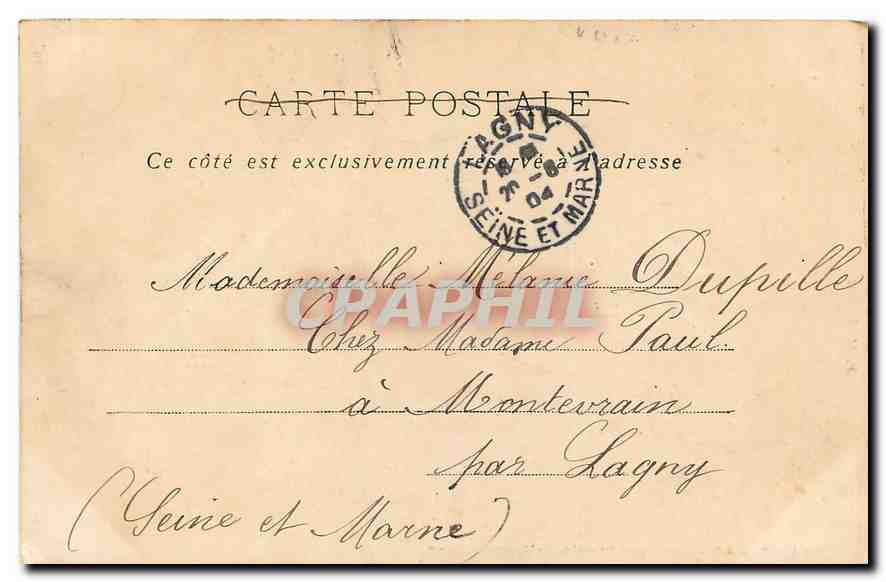 CARTE POSTALE
Ce côté est exclusivement réservé à l'adresse
LAGNY
26 -8
04
SEINE ET MARNE
Mademoiselle Mélanie Dupille
CPARHIL
Chez Madame Paul.
à Montevrain
par Lagny
(Seine et Marne)